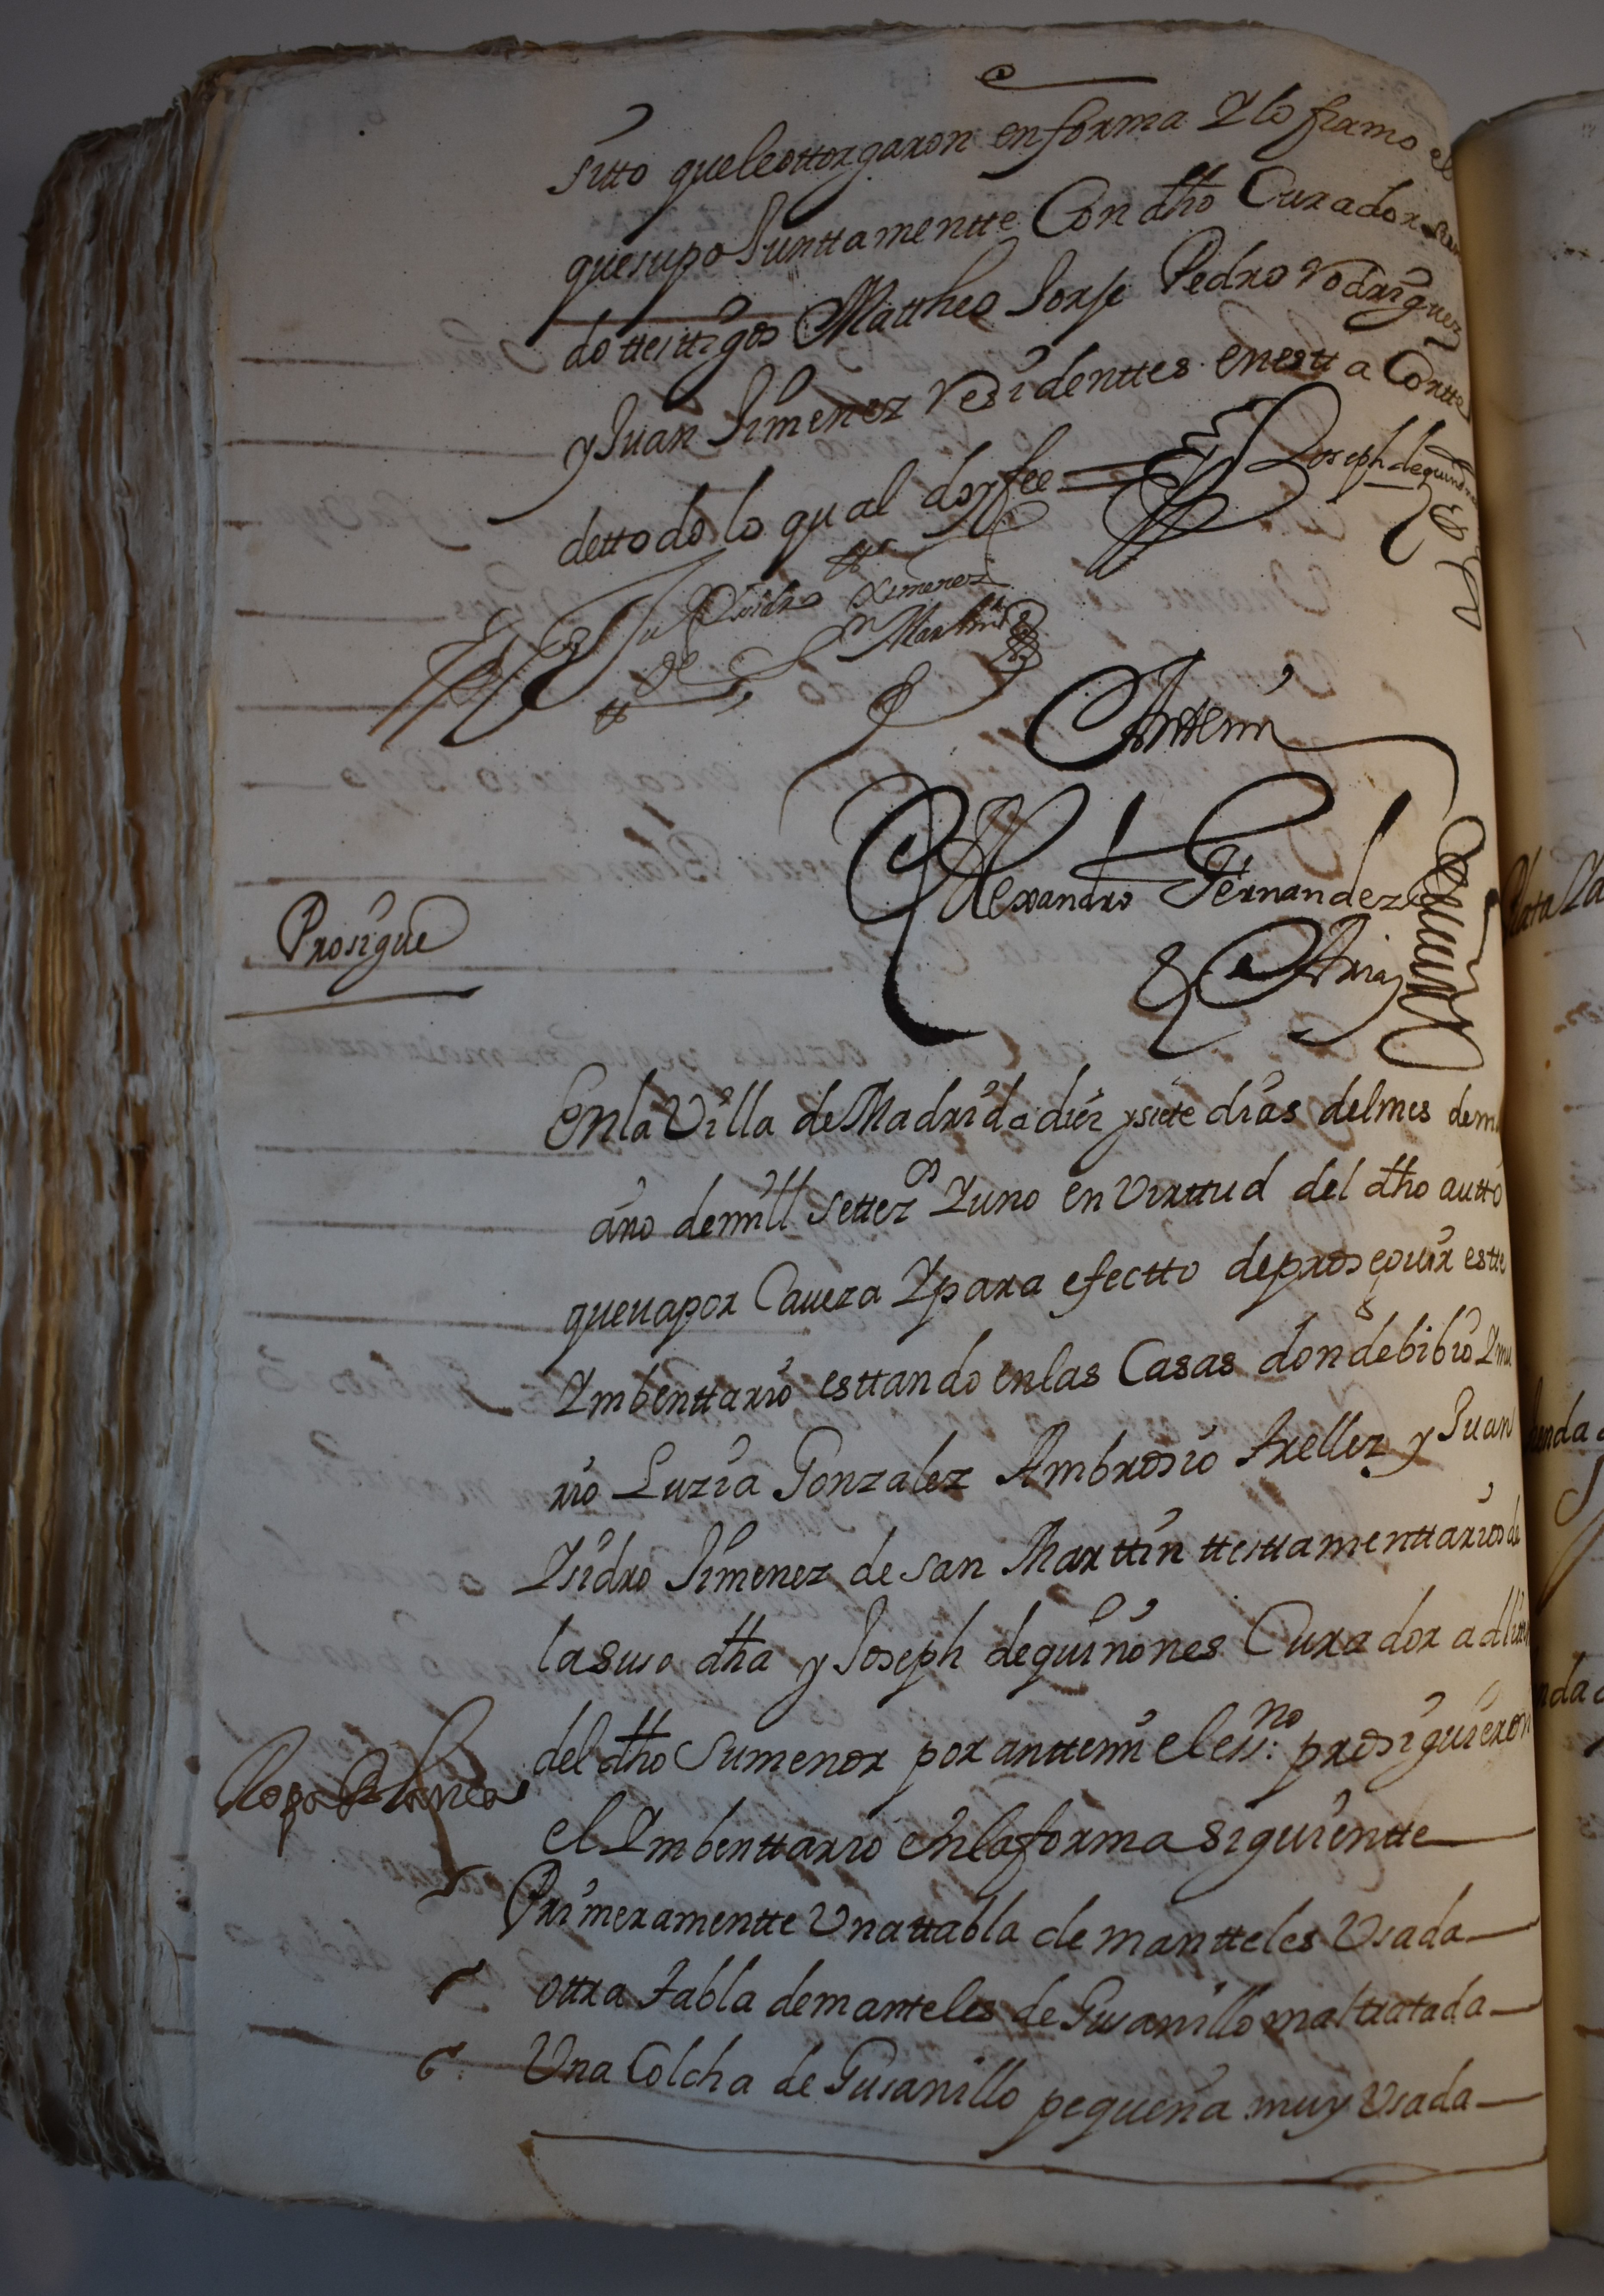 sitto que le ottorgaron en forma Y lo firmo el
que supo Junttamentte Con dho Curador sien
do ttesttigos Mattheo Jorje Pedro rodriguez
y Juan Jimenez residenttes en estta Cortte
de ttodo lo qual doy fee
Joseph de quiñones
Juº Ysidro Ximenez
de Sn Martin
Antemi
Alexandro Fernandez
Arias
Prosigue
En la Villa de Madrid a diez y siete dias del mes de m
año de mill settezos Y uno en Virttud del dho autto
que va por Caveza Y para efectto de proseguir estte
Ymbenttario esttando en las Casas donde bibio Y mu
rio Luzia Gonzalez Ambrosio Arellez y Juan
Ysidro Jimenez de san Marttin ttesttamenttarios de
la suso dha y Joseph de quiñones Curador ad litem
del dho su menor por anttemi el essno: prosiguieron
el Ymbenttario en la forma siguientte
Ropa Blanca
Primeramentte Una ttabla de mantteles Usada
ottra tabla de manteles de Gusanillo maltratada
Una Colcha de Gusanillo pequeña muy Usada
Plata La